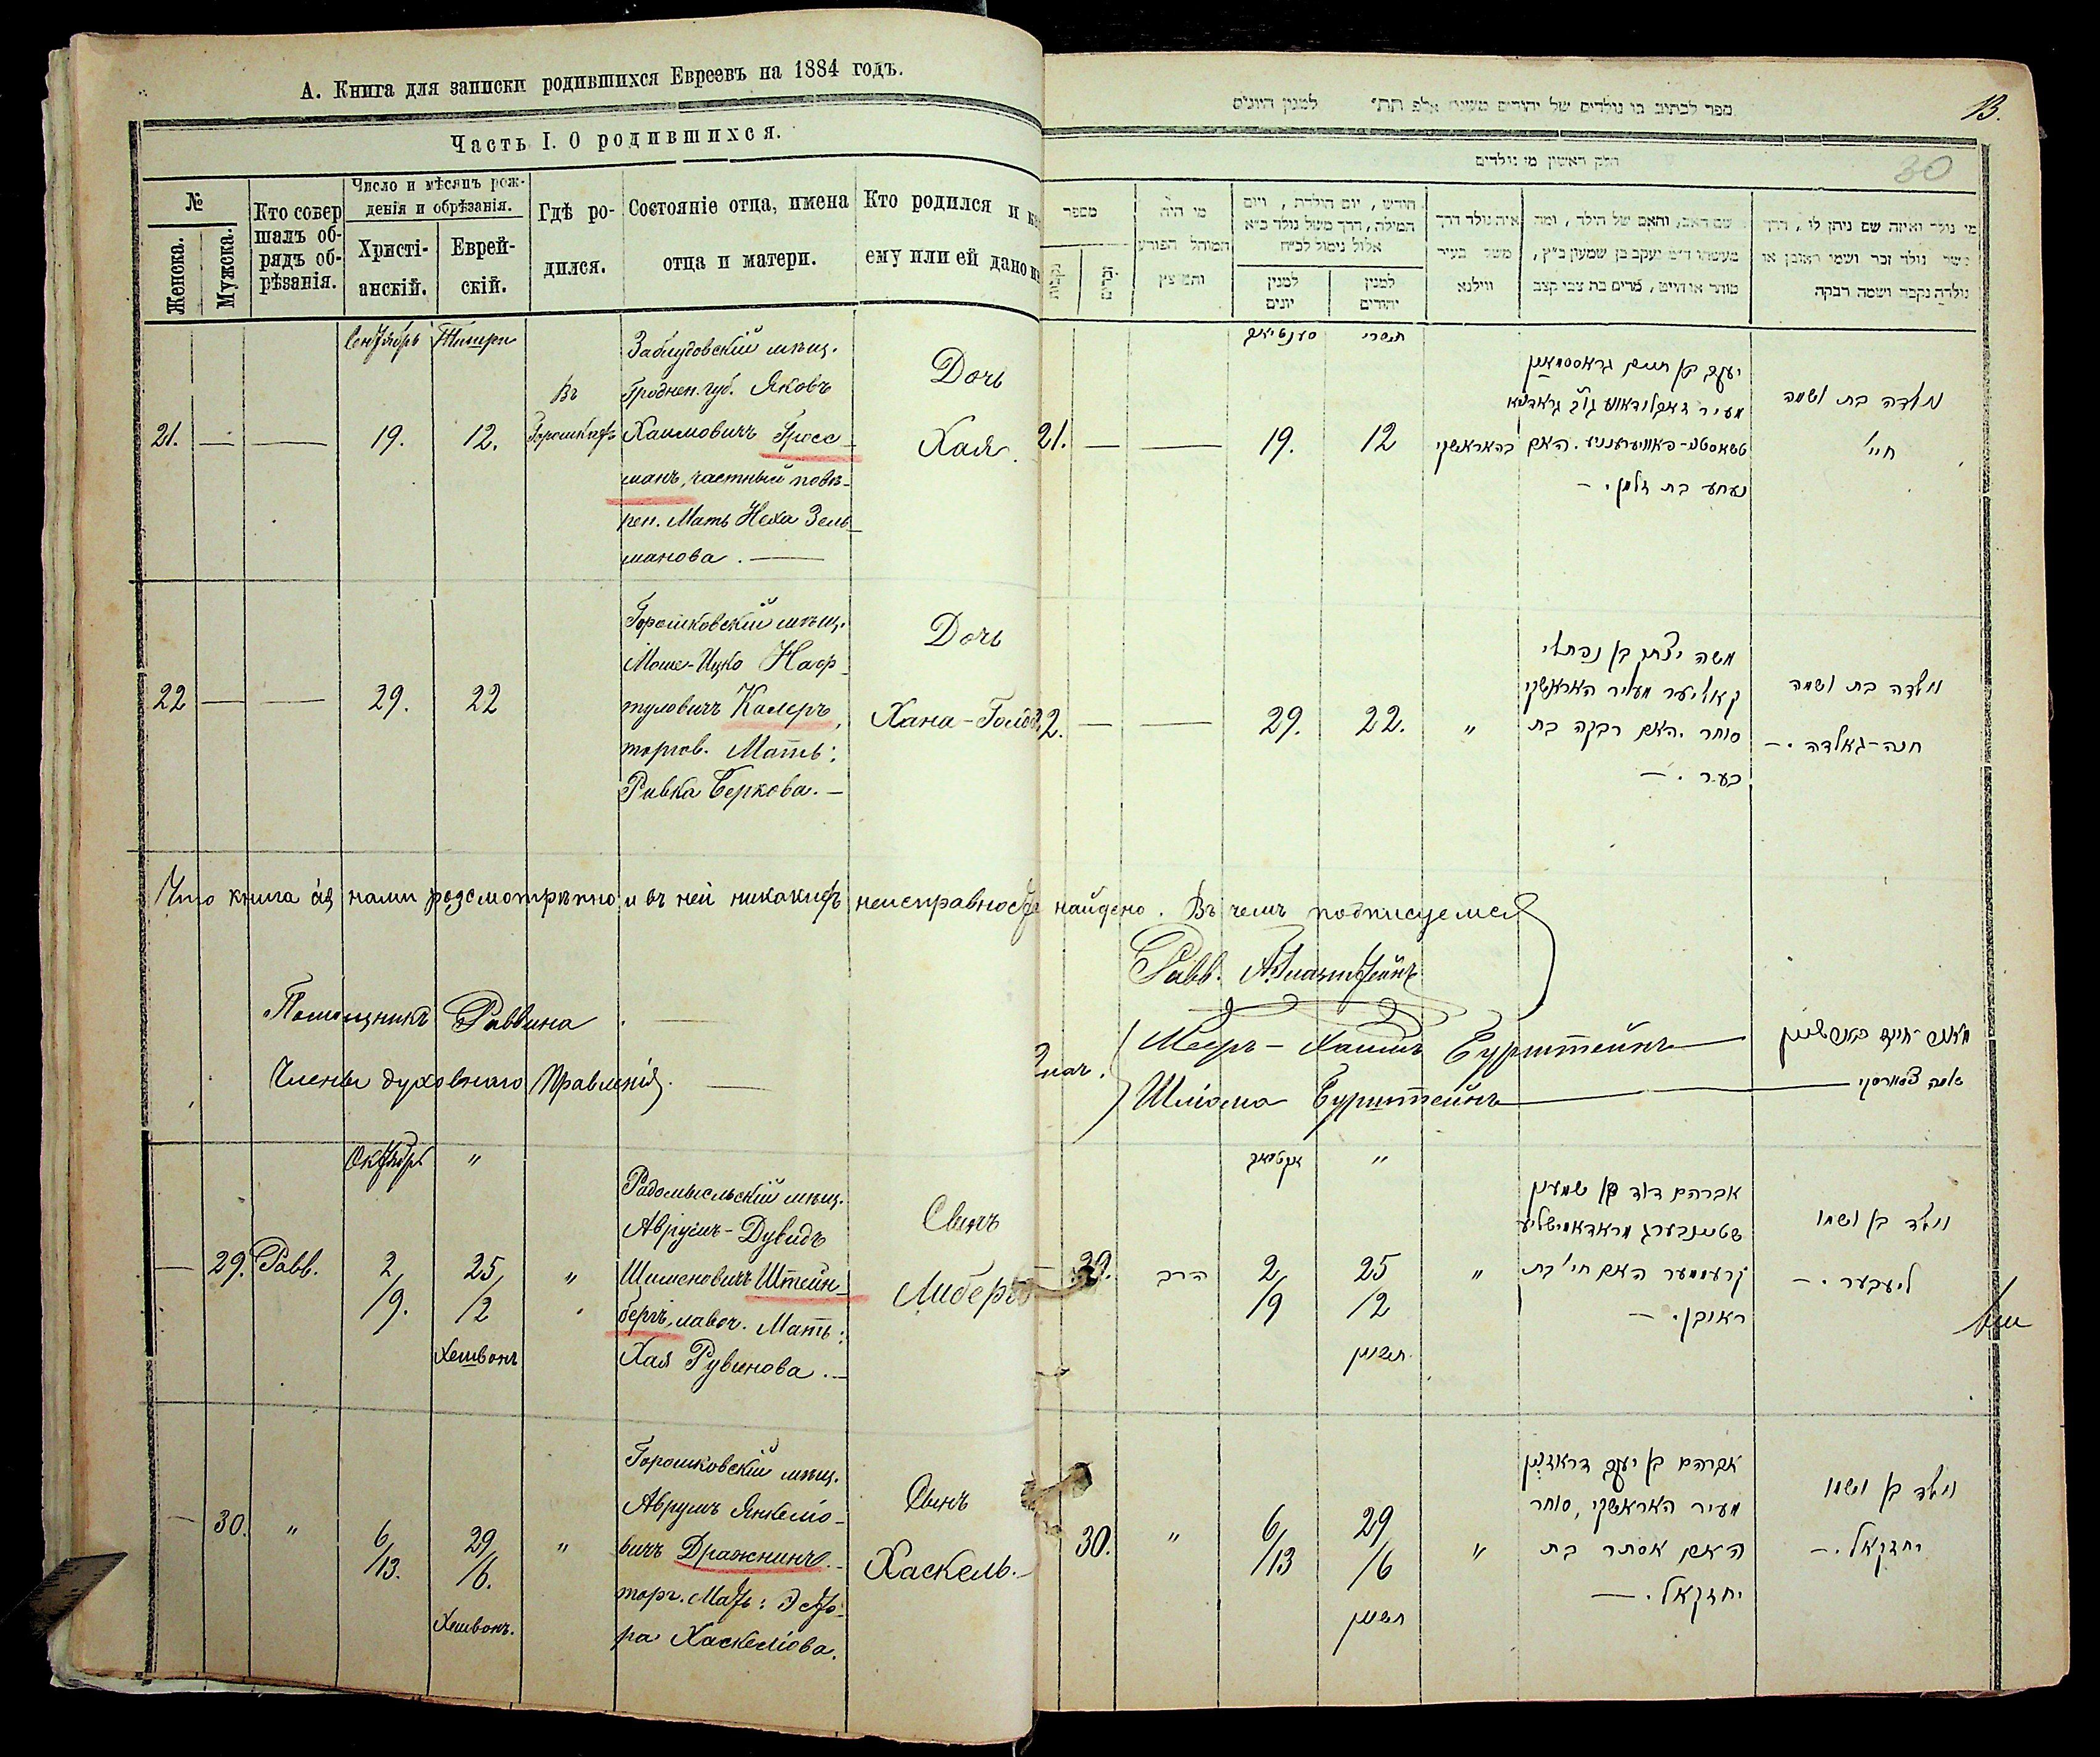 А. Книга для записки родившихся Евреевъ на 1884 годъ.
Часть I. О родившихся.
№
Женска.
Мужска.
Кто совер
шалъ об-
рядъ об-
рѣзанія.
Число и мѣсяцъ рож-
денія и обрѣзанія.
Христі-
анскій.
Еврей-
скій.
Гдѣ ро-
дился.
Состояніе отца, имена
отца и матери.
Кто родился и
ему или ей дано
Сентябрь Тишри
21. — — 19. 12.
Въ
Горошкахъ
Заблудовскій мѣщ.
Гроднен. губ. Яковъ
Хаимовичъ Гросс-
манъ, частный повѣ-
рен. Мать Неха Зель-
манова. —
Дочь
Хая.
22 — — 29. 22
Горошковскій мѣщ.
Моше-Ицко Наф-
туловичъ Колеръ,
торгов. Мать:
Ривка Беркова. —
Дочь
Хана-Голда
Что книга сія нами розсмотрѣнно и въ ней никакихъ неисправностей найдено. Въ чемъ подписуемся
Помощникъ Раввина. —
Члены духовнаго Правленія. —
Октябрь "
— 29. Равв. 2/9. 25/2 Хешвонъ "
Радомысльскій мѣщ.
Аврумъ-Дувидъ
Шименовичъ Штейн-
бергъ, лавоч. Мать:
Хая Рувинова. —
Сынъ
Либеръ
— 30. " 6/13. 29/6. Хешвонъ. "
Горошковскій мѣщ.
Аврумъ Янкеліо-
вичъ Дражнинъ. -
торг. Мать: Эстѣ-
ра Хаскеліова.
Сынъ
Хаскель. -
13.
30
ספר לכתוב בו נולדים של יהודים
למנין היונים
חלק ראשון מי נולדים
מספר
נקבות
זכרים
מי היה
המוהל הפורע
והמוצץ
חודש, יום הולדת, ויום
המילה, דרך משל נולד כ״א
אלול נימול לכ״ח
למנין
יונים
למנין
יהודים
איה נולד דרך
משל בעיר
ווילנא
שם האב, והאם של הילד, ומה
מעשהו ד״מ יעקב בן שמעון כ״ץ,
סוחר או חייט, מרים בת צבי קצב
מי נולד ואיזה שם ניתן לו, דרך
משל נולד זכר ושמו ראובן או
נולדה נקבה ושמה רבקה
תשרי
21. — — 19. 12
בהאראשקי
יעקב בן חיים גראססמאן
מעיר זאבלודאווע גוב׳ גראדנא
טשאסטנ-פאוויערעניע. האם
נעחע בת זלמן. —
נולדה בת ושמה
חי׳
2. — — 29. 22. "
משה יצחק בן נפתלי
קאליער מעיר האראשקי
סוחר. האם רבקה בת
בער. —
נולדה בת ושמה
חנה-גאלדה. —
Равв.
Мееръ-Хаимъ Бурштейнъ —
Шліома Бурштейнъ —
אקטיאב "
29. הרב 2/9 25/2 חשוון "
אברהם דוד בן שמעון
שטיינבערג מראדאמישליע
קרעמער האם חי׳ בת
ראובן. —
נולד בן ושמו
ליבער. —
30. " 6/13 29/6 חשוון "
אברהם בן יעקב דראזנין
מעיר האראשקי, סוחר
האם אסתר בת
יחזקאל. —
נולד בן ושמו
יחזקאל. —